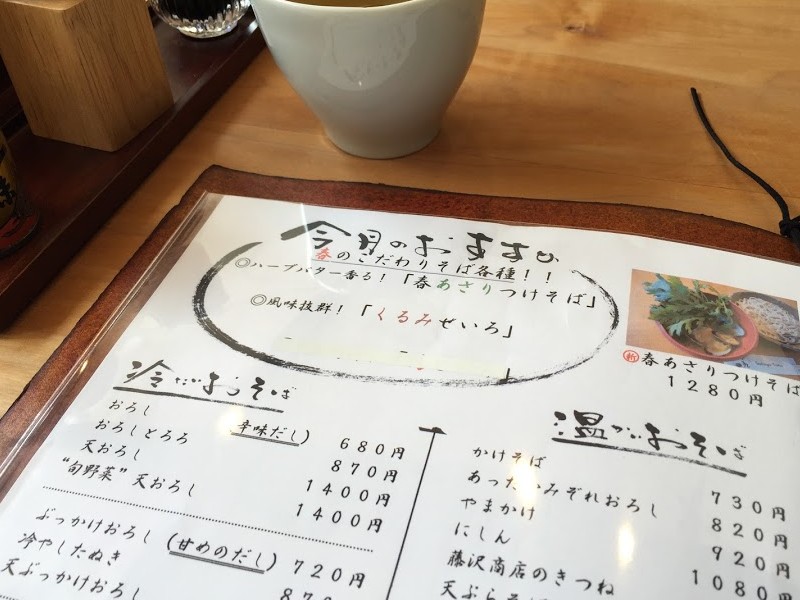 今月のおすすめ
春のこだわりそば各種！！
◎ハーブバター香る！「春あさりつけそば」
◎風味抜群！「くるみせいろ」
新 春あさりつけそば
1280円
冷たいおそば
(辛味だし)
おろし 680円
おろしとろろ 870円
天おろし 1400円
"旬野菜"天おろし 1400円
(甘めのだし)
ぶっかけおろし 720円
冷やしたぬき
天ぶっかけおろし
温かいおそば
かけそば 730円
あったかみぞれおろし 820円
やまかけ 920円
にしん 1080円
藤沢商店のきつね